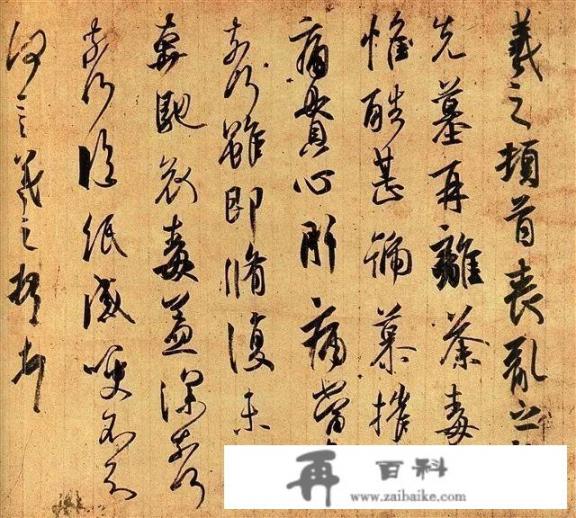 羲之頓首喪亂之
先墓再離荼毒
惟酷甚號慕摧
痛貫心肝痛當
奈何雖即脩復未
奔馳哀毒益深奈何
奈何臨紙感哽不知
何言羲之頓首
再百科
www.zaibaike.com